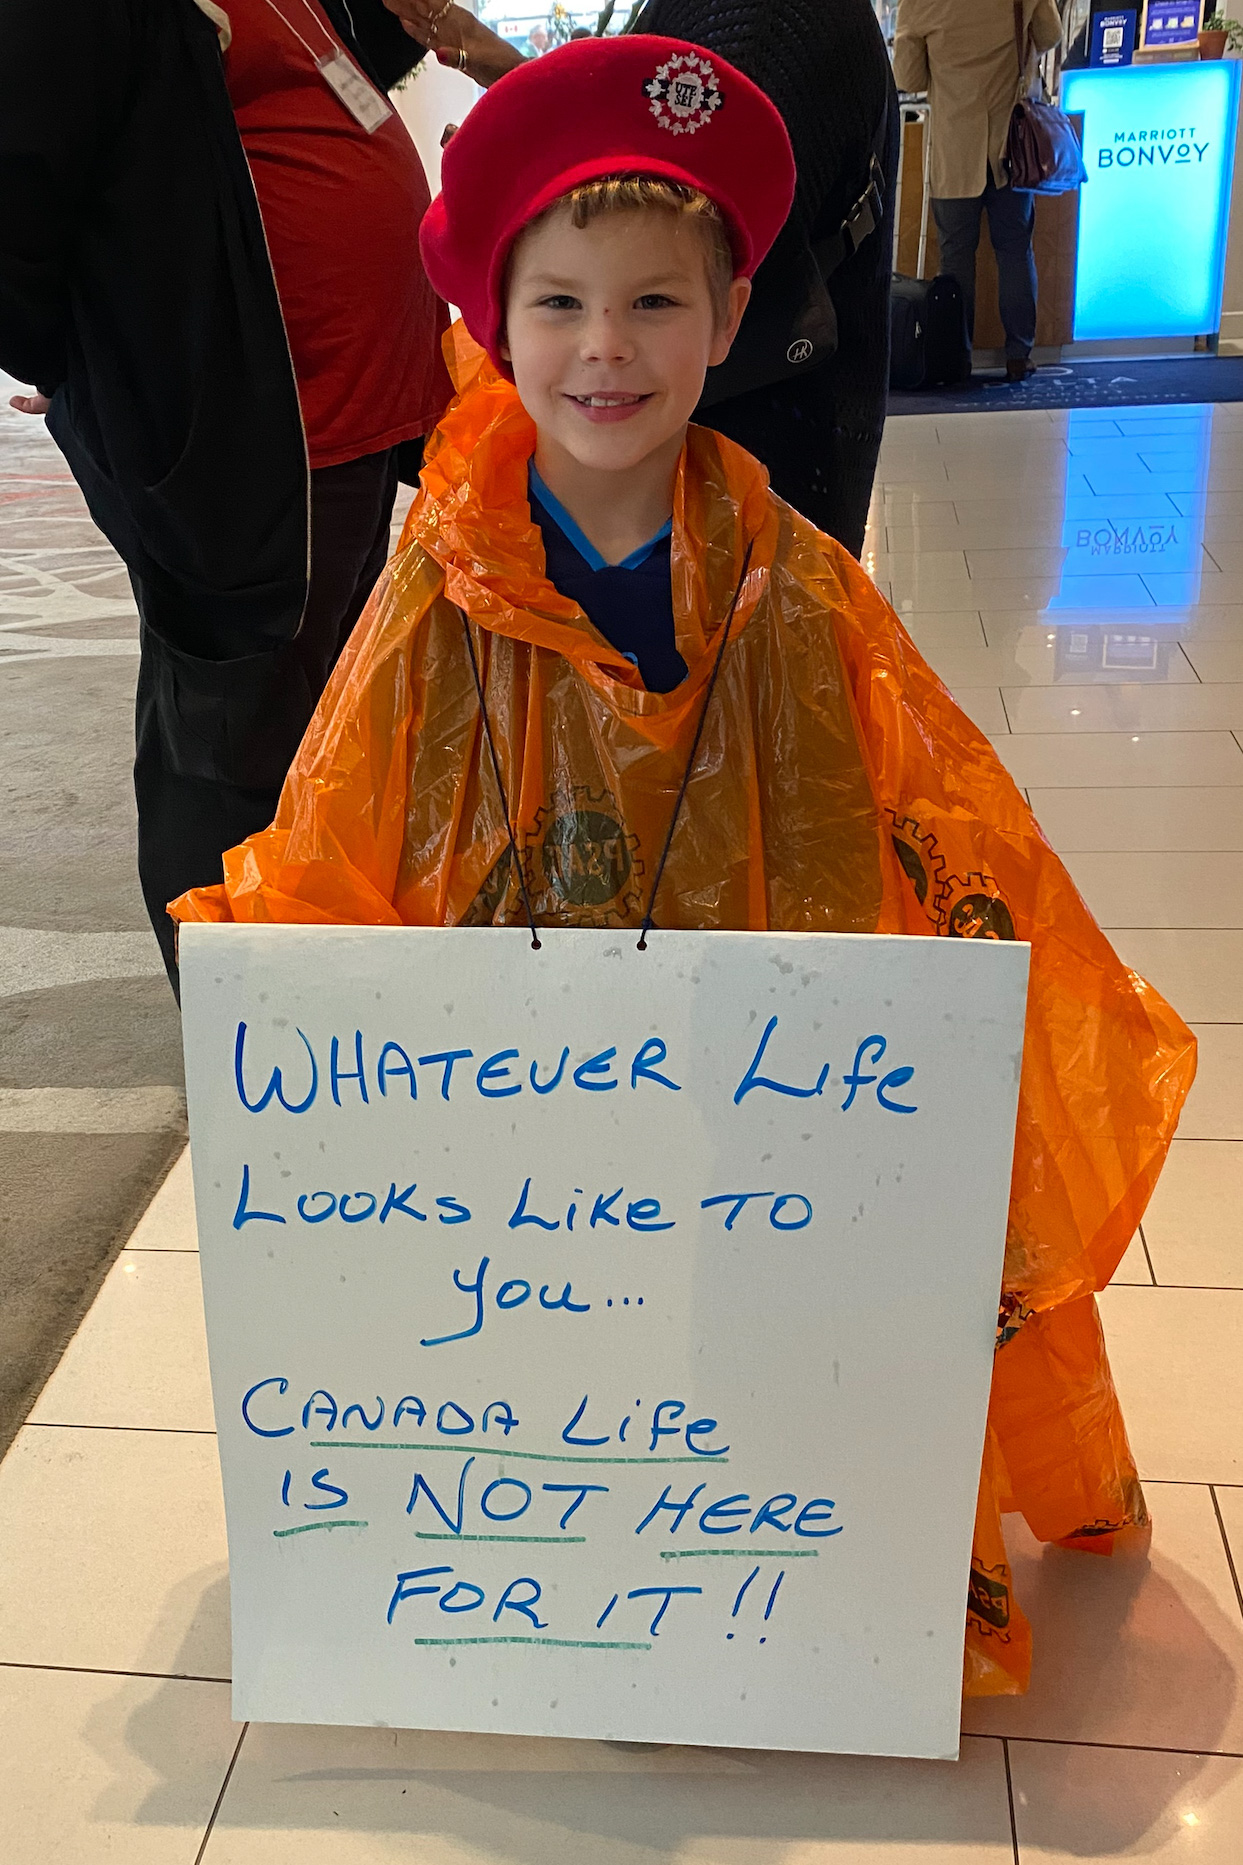 UTE
SEI
MARRIOTT
BONVOY
WHATEVER Life
LOOKS LiKe TO
you...
CANADA Life
IS NOT HERE
FOR IT!!